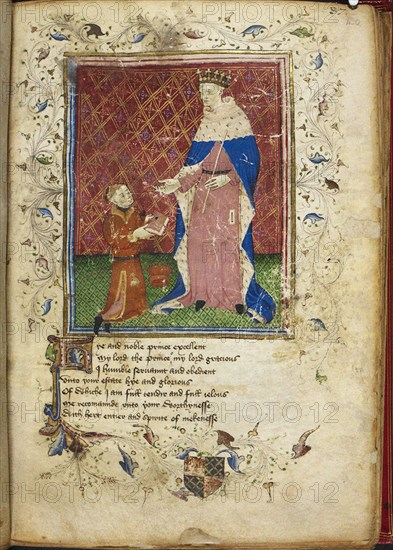 Hye and noble prince excellent
My lord the prince my lord gracious
I humble servaunt and obedient
Unto your estate hye and glorious
Of whiche I am full tendir and full jelous
Me recomaunde unto your worthynesse
With hert entier and spirite of mekenesse
PHOTO 12